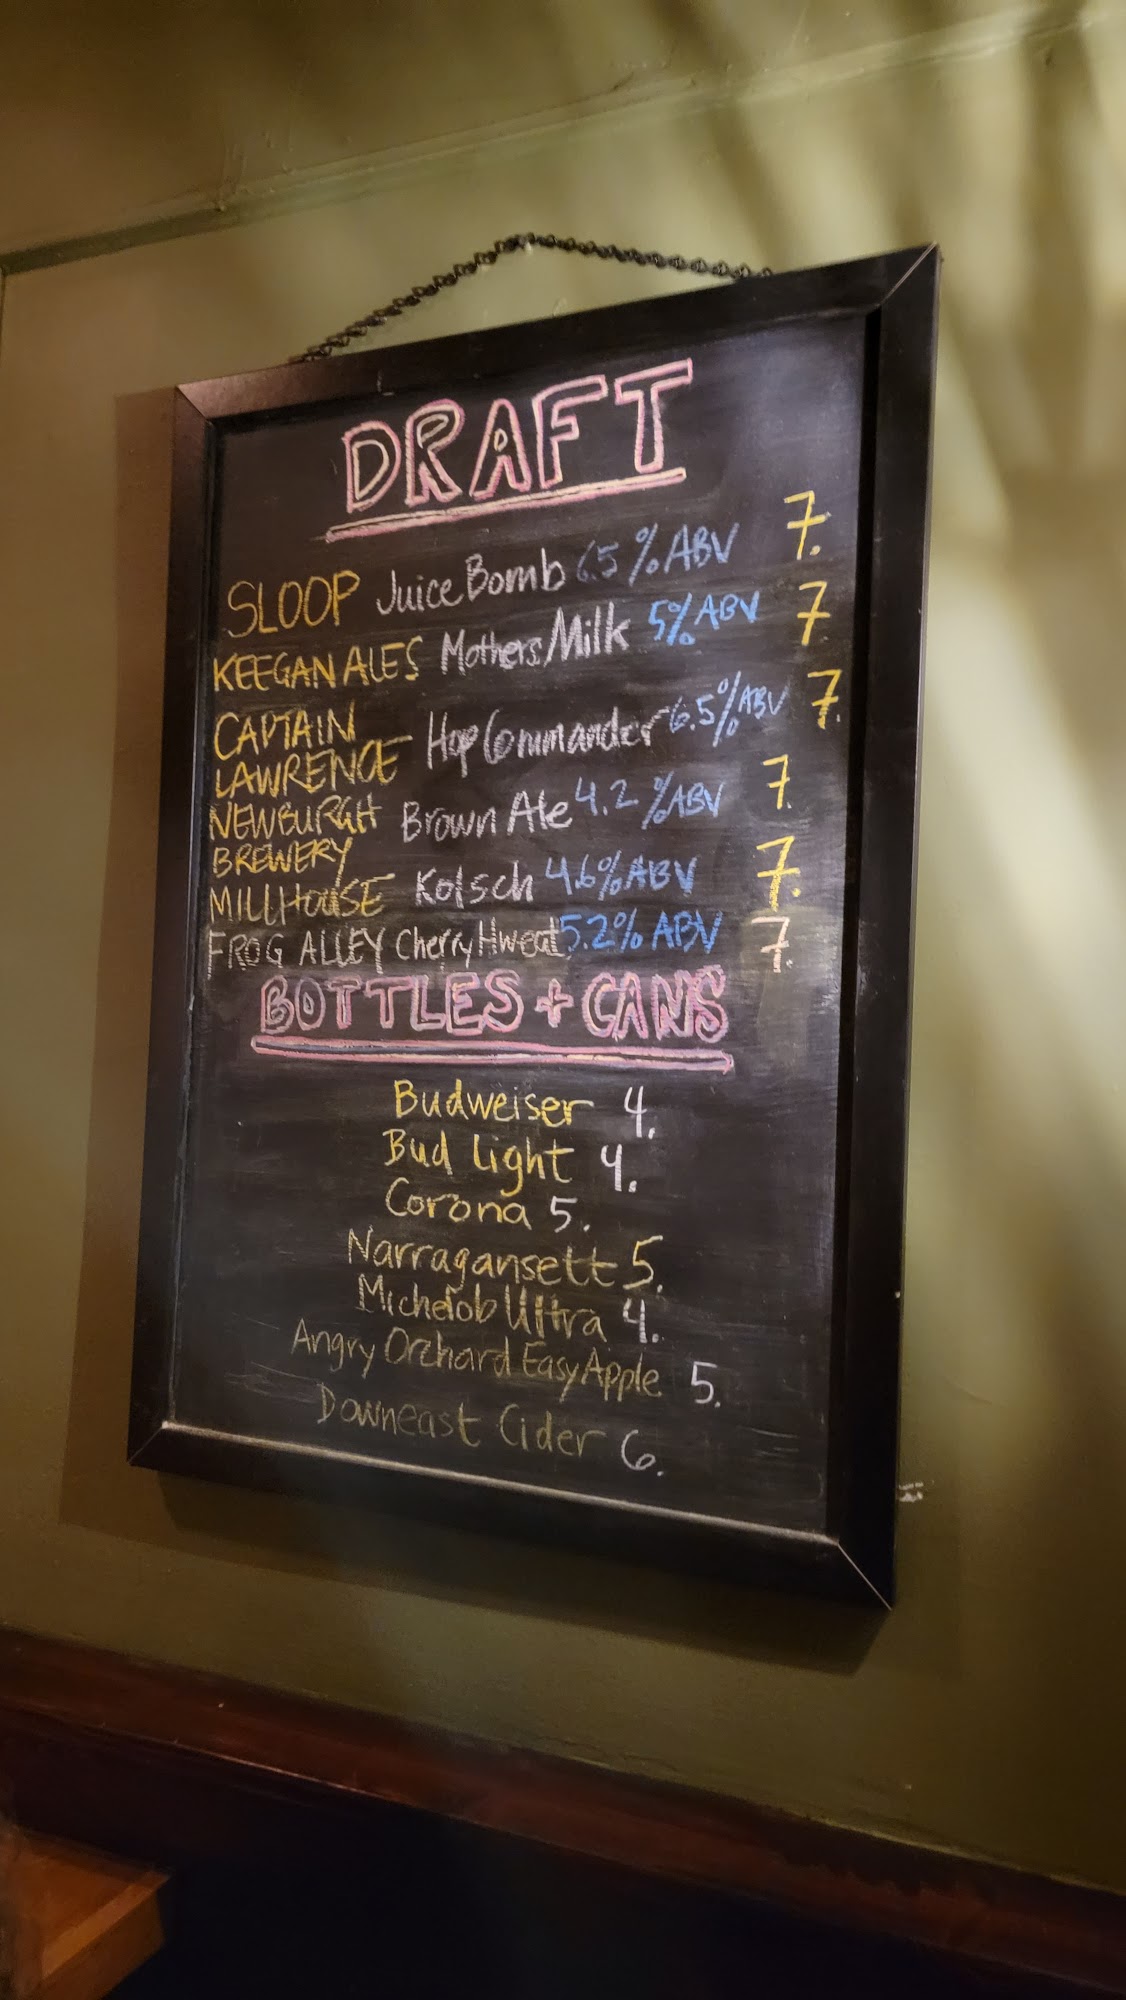 DRAFT
SLOOP Juice Bomb 6.5 % ABV 7.
KEEGAN ALES Mothers Milk 5% ABV 7
CAPTAIN
LAWRENCE Hop Commander 6.5% ABV 7.
NEWBURGH
BREWERY Brown Ale 4.2 % ABV 7.
MILLHOUSE Kolsch 4.6% ABV 7.
FROG ALLEY Cherry Hweat 5.2% ABV 7.
BOTTLES + CANS
Budweiser 4.
Bud Light 4.
Corona 5.
Narragansett 5.
Michelob Ultra 4.
Angry Orchard Easy Apple 5.
Downeast Cider 6.